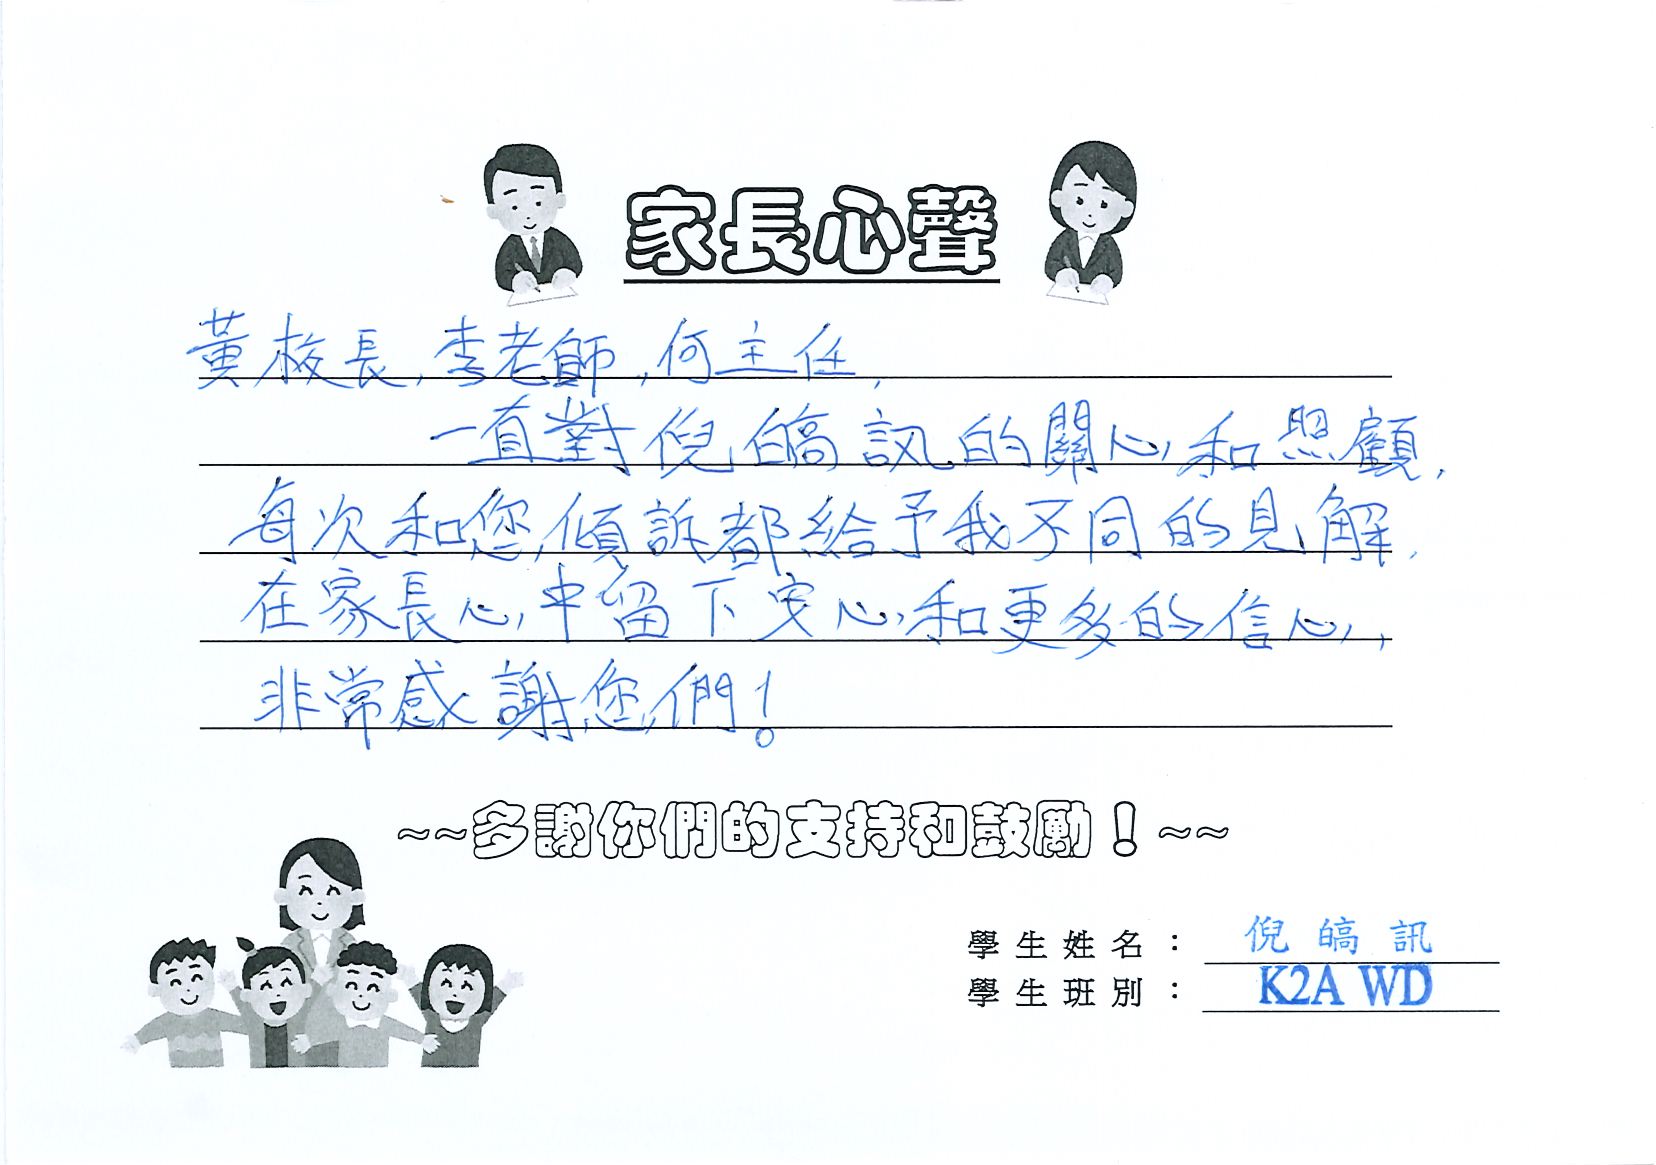 家長心聲
黃校長,李老師,何主任,
一直對倪皜訊的關心和照顧,
每次和您傾訴都給予我不同的見解,
在家長心中留下安心和更多的信心,
非常感謝您們!
~~多謝你們的支持和鼓勵!~~
學生姓名:倪皜訊
學生班別:K2A WD